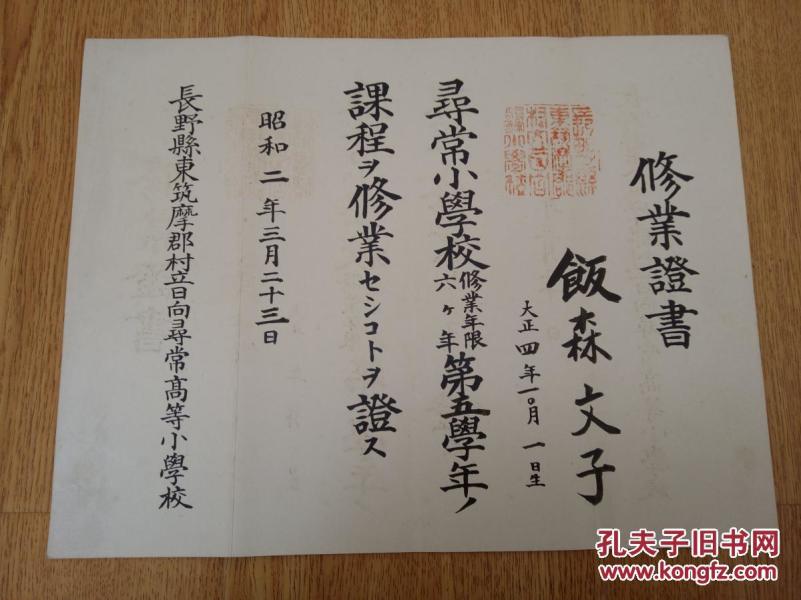 修業證書
飯森文子
大正四年一〇月一日生
尋常小學校修業年限六ヶ年第五學年ノ
課程ヲ修業セシコトヲ證ス
昭和二年三月二十三日
長野縣東筑摩郡村立日向尋常高等小學校
孔夫子旧书网
www.kongfz.com